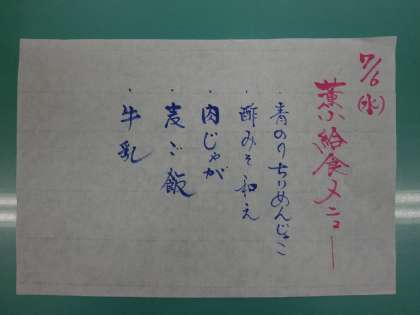 7/6(水)
薫小給食メニュー
・青のりちりめんじゃこ
・酢みそ和え
・肉じゃが
・麦ご飯
・牛乳